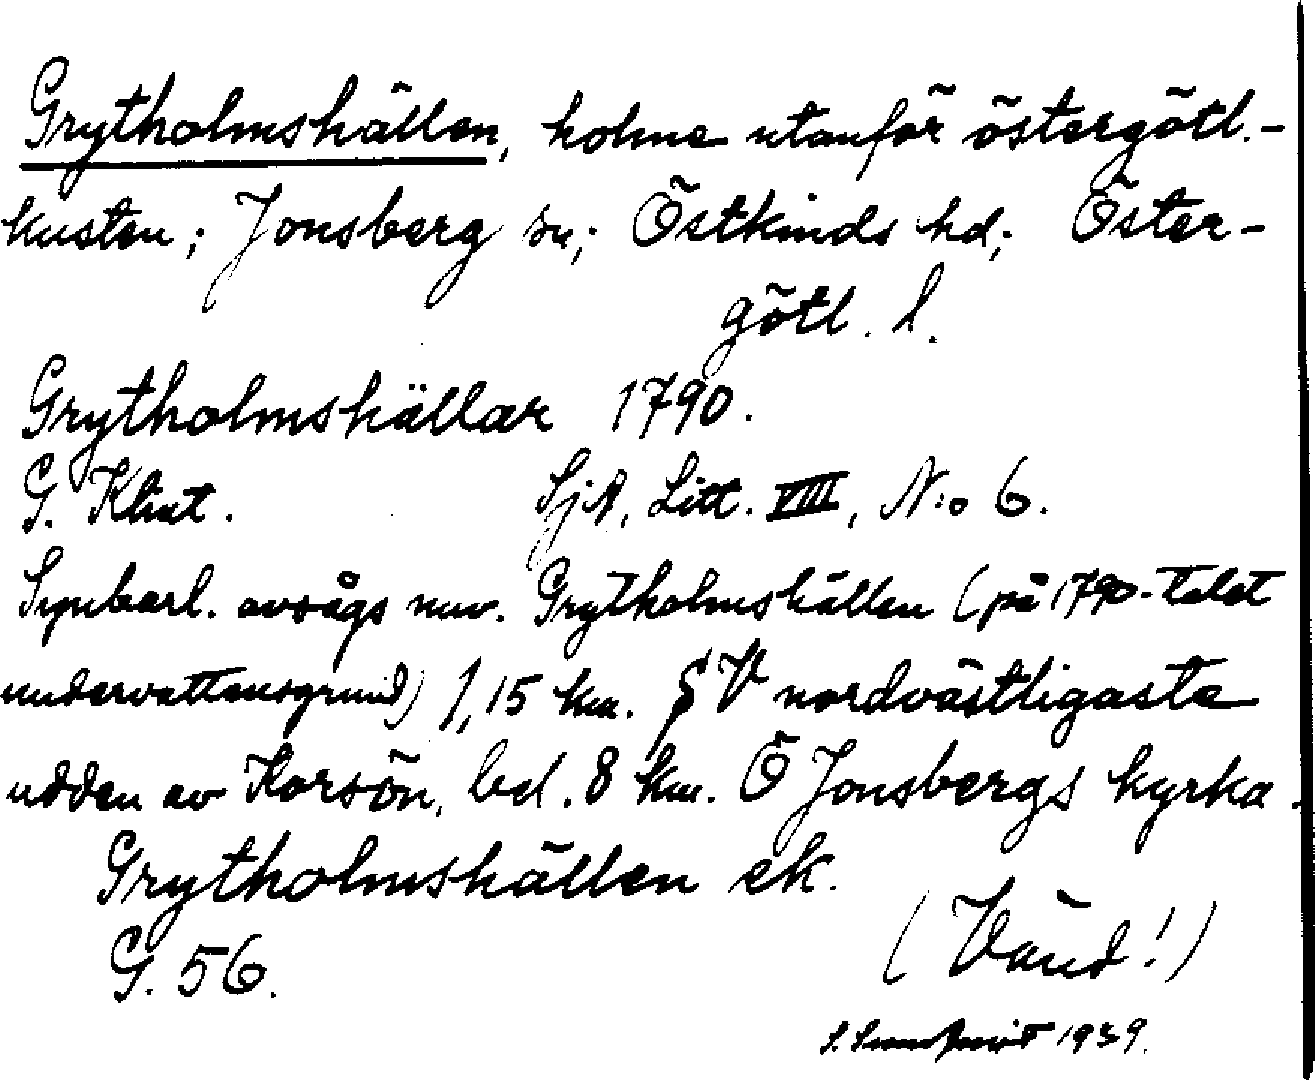 Grytholmshällen, holme utanför östergötl.-
kusten; Jonsberg sn; Östkinds hd; Öster-
götl. l.
Grytholmshällar 1790.
G. Klint. SjA, Litt. VIII, N:o 6.
Synbarl. avsågs nuv. Grytholmshällen (på 1790-talet
undervattensgrund) 1,15 km. S V nordvästligaste
udden av Korsön, bd. 8 km. Ö Jonsbergs kyrka.
Grytholmshällen ek.
G. 56.
(Vänd!)
1939.